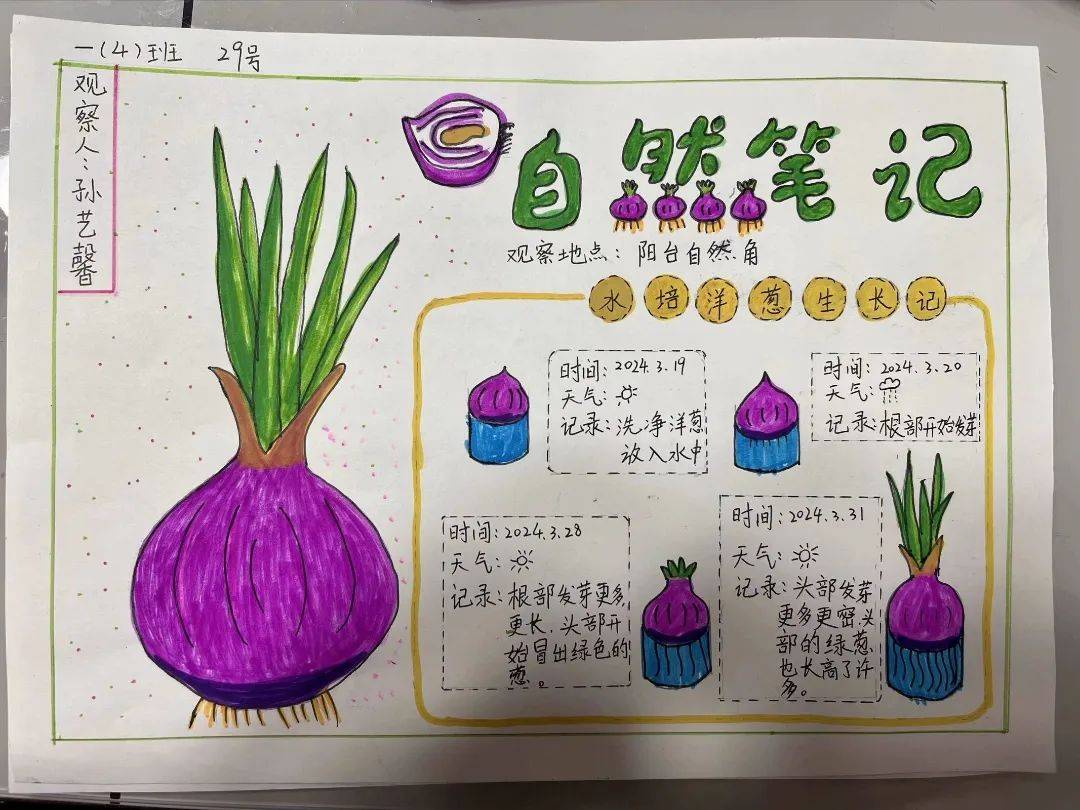 一(4)班 29号
观察人:孙艺馨
自然笔记
观察地点:阳台自然角
水培洋葱生长记
时间:2024.3.19
天气:
记录:洗净洋葱
放入水中
时间:2024.3.20
天气:
记录:根部开始发芽
时间:2024.3.28
天气:
记录:根部发芽更多
更长.头部开
始冒出绿色的
葱。
时间:2024.3.31
天气:
记录:头部发芽
更多更密.头
部的绿葱
也长高了许
多。